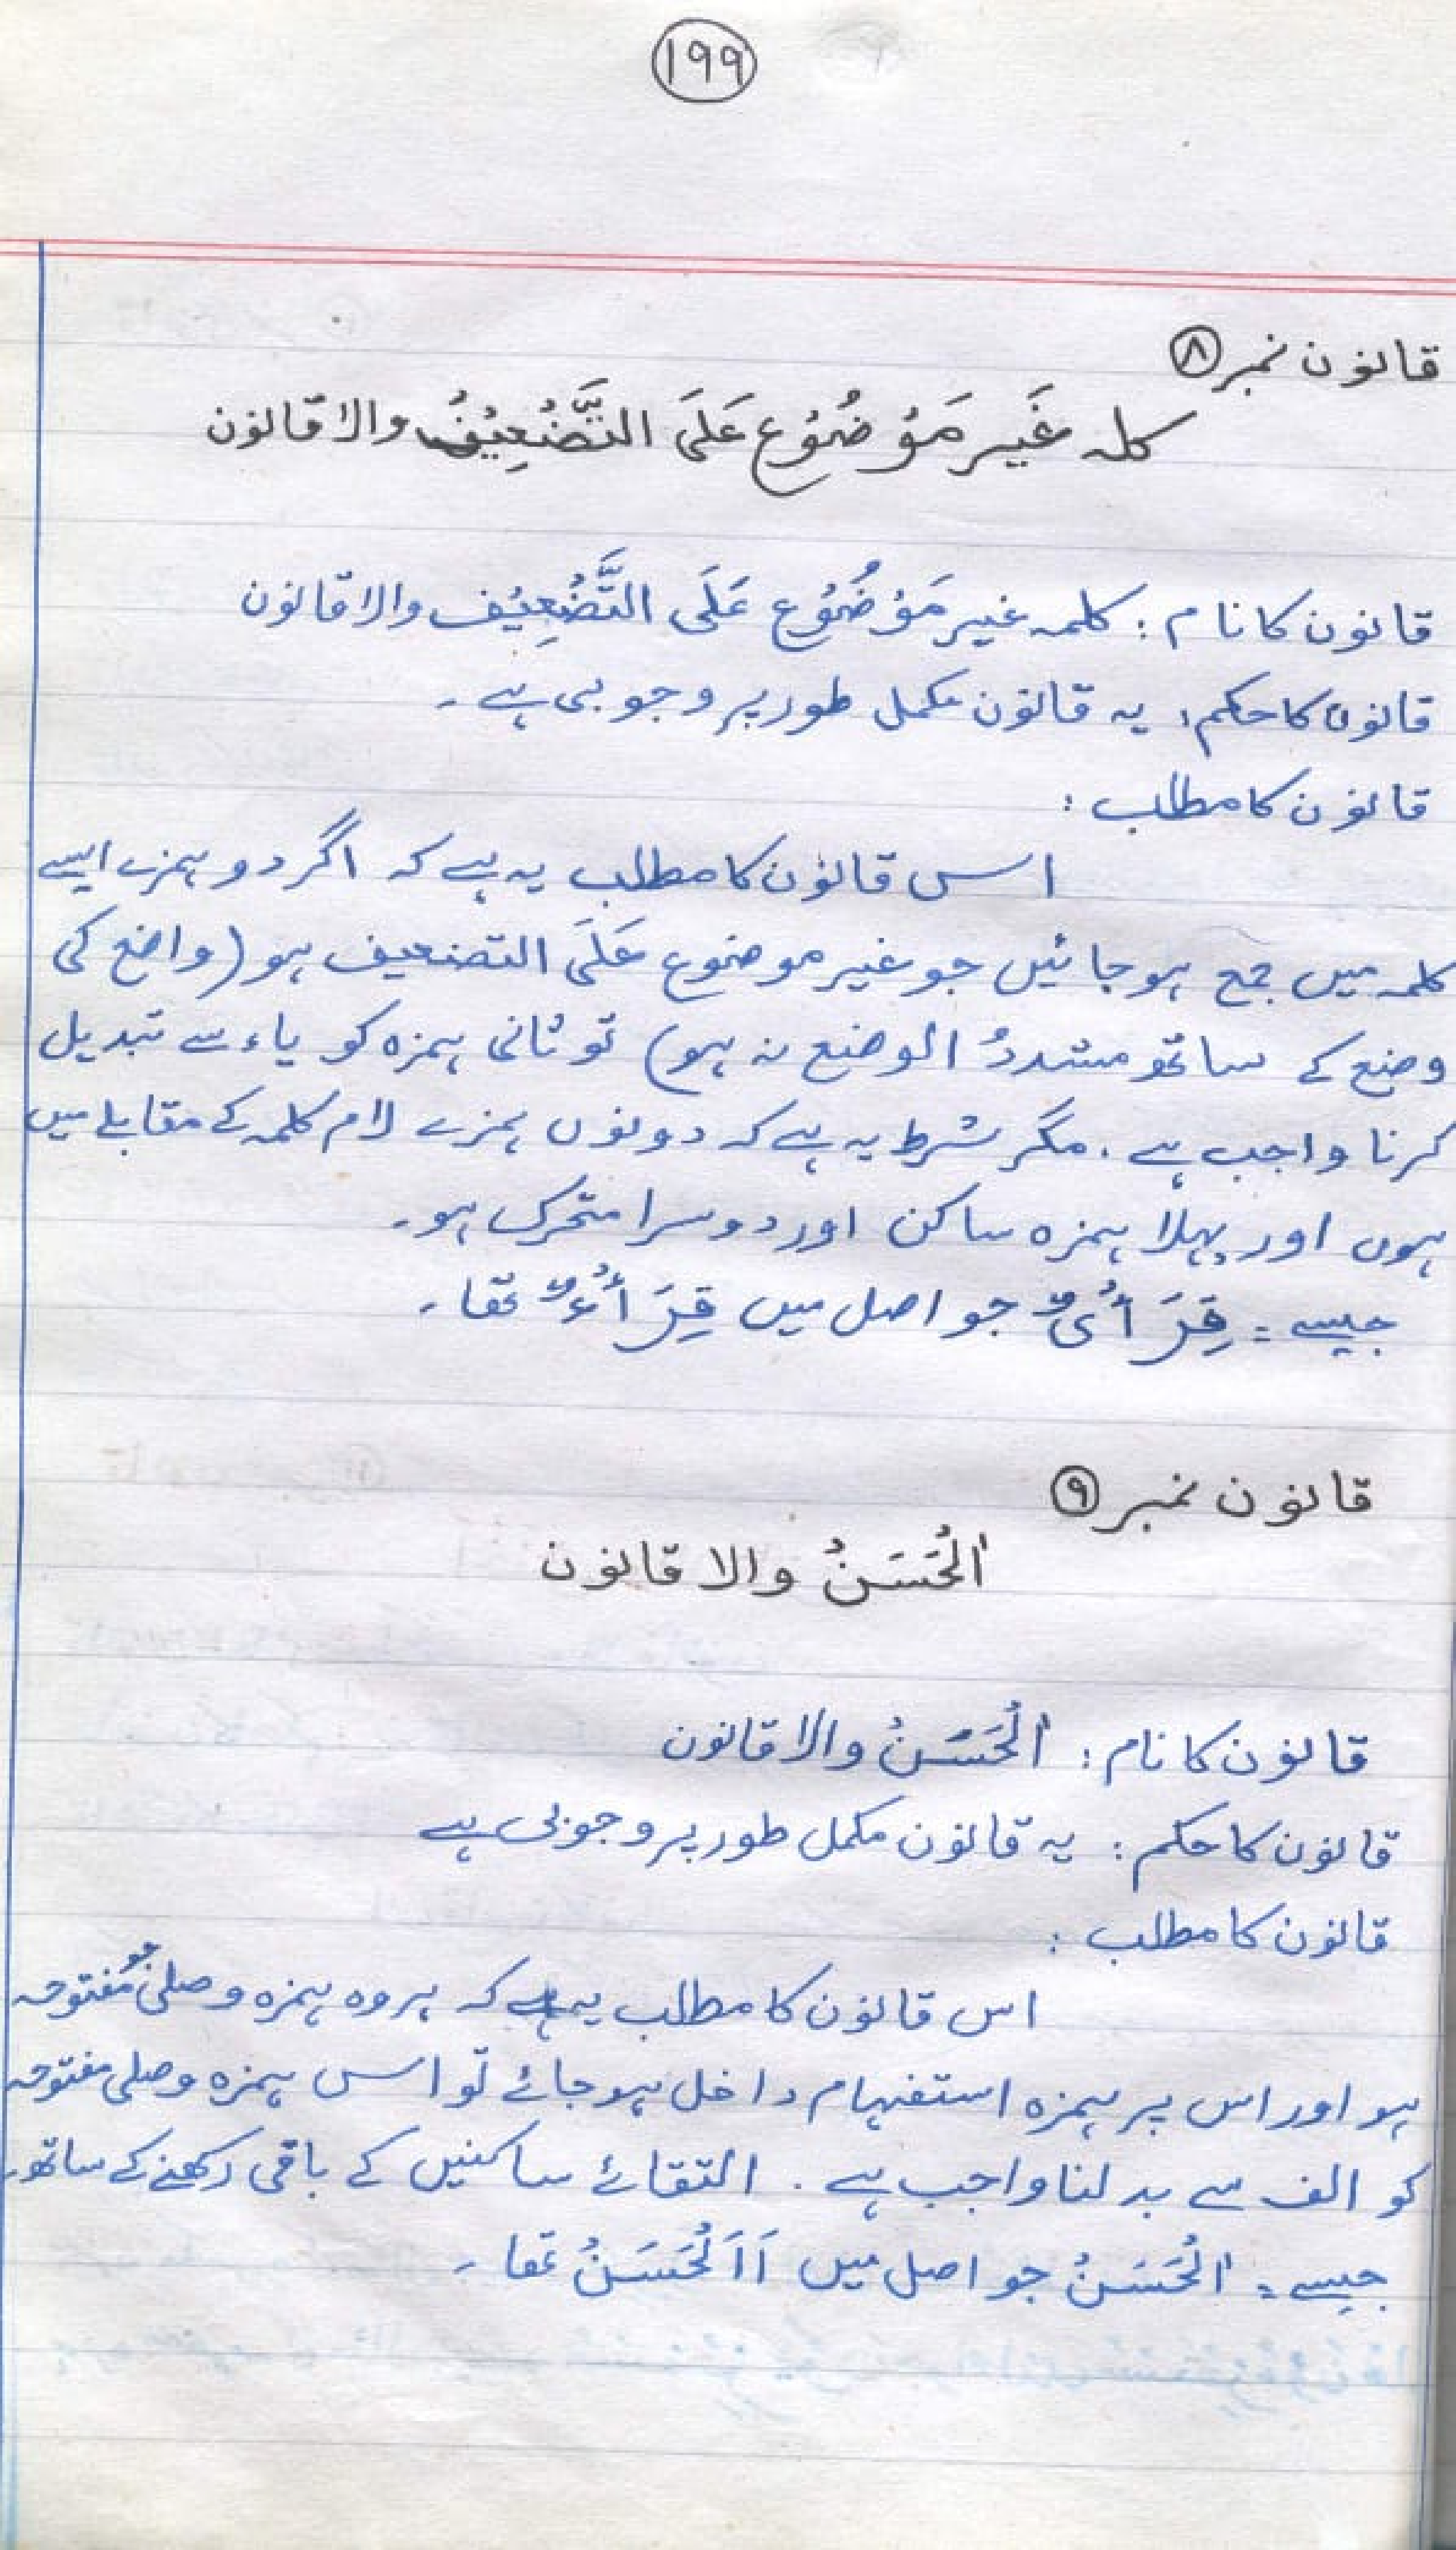 ۱۹۹
قانون نمبر ۸
کلمہ غَیر مَوْضُوْع عَلَی التَّضْعِیْفُ والا قانون
قانون کا نام : کلمہ غیر مَوْضُوْع عَلَی التَّضْعِیْف والا قانون
قانون کا حکم : یہ قانون مکمل طور پر وجوبی ہے ۔
قانون کا مطلب :
اس قانون کا مطلب یہ ہے کہ اگر دو ہمزے ایسے
کلمہ میں جمع ہو جائیں جو غیر موضوع عَلَی التضعیف ہو (واضع کی
وضع کے ساتھ مشددُ الوضع نہ ہو) تو ثانی ہمزہ کو یاء سے تبدیل
کرنا واجب ہے ۔ مگر شرط یہ ہے کہ دونوں ہمزے لام کلمہ کے مقابلے میں
ہوں اور پہلا ہمزہ ساکن اور دوسرا متحرک ہو ۔
جیسے = قِرَأْیٌ جو اصل میں قِرَأْءٌ تھا ۔
قانون نمبر ۹
اٰلْحَسَنُ والا قانون
قانون کا نام : اٰلْحَسَنُ والا قانون
قانون کا حکم : یہ قانون مکمل طور پر وجوبی ہے
قانون کا مطلب :
اس قانون کا مطلب یہ ہے کہ ہر وہ ہمزہ وصلی جو مفتوحہ
ہو اور اس پر ہمزہ استفہام داخل ہو جائے تو اس ہمزہ وصلی مفتوحہ
کو الف سے بدلنا واجب ہے ۔ التقائے ساکنیں کے باقی رکھنے کے ساتھ ۔
جیسے = اٰلْحَسَنُ جو اصل میں اَاَلْحَسَنُ تھا ۔